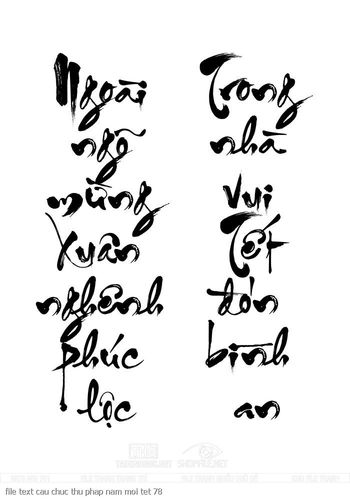 Ngoài
ngõ
mừng
Xuân
nghênh
phúc
lộc
Trong
nhà
vui
Tết
đón
bình
an
SHOPFILE.NET
file text cau chuc thu phap nam moi tet 78